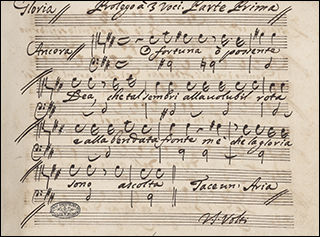 Gloria Prologo à 3 Voci. Parte Prima
Ancora O fortuna ò possente
Dea, che tal sembri alla volubil rota
e alla bendata fronte me che la gloria
sono ascolta Tace un' Aria
Volti